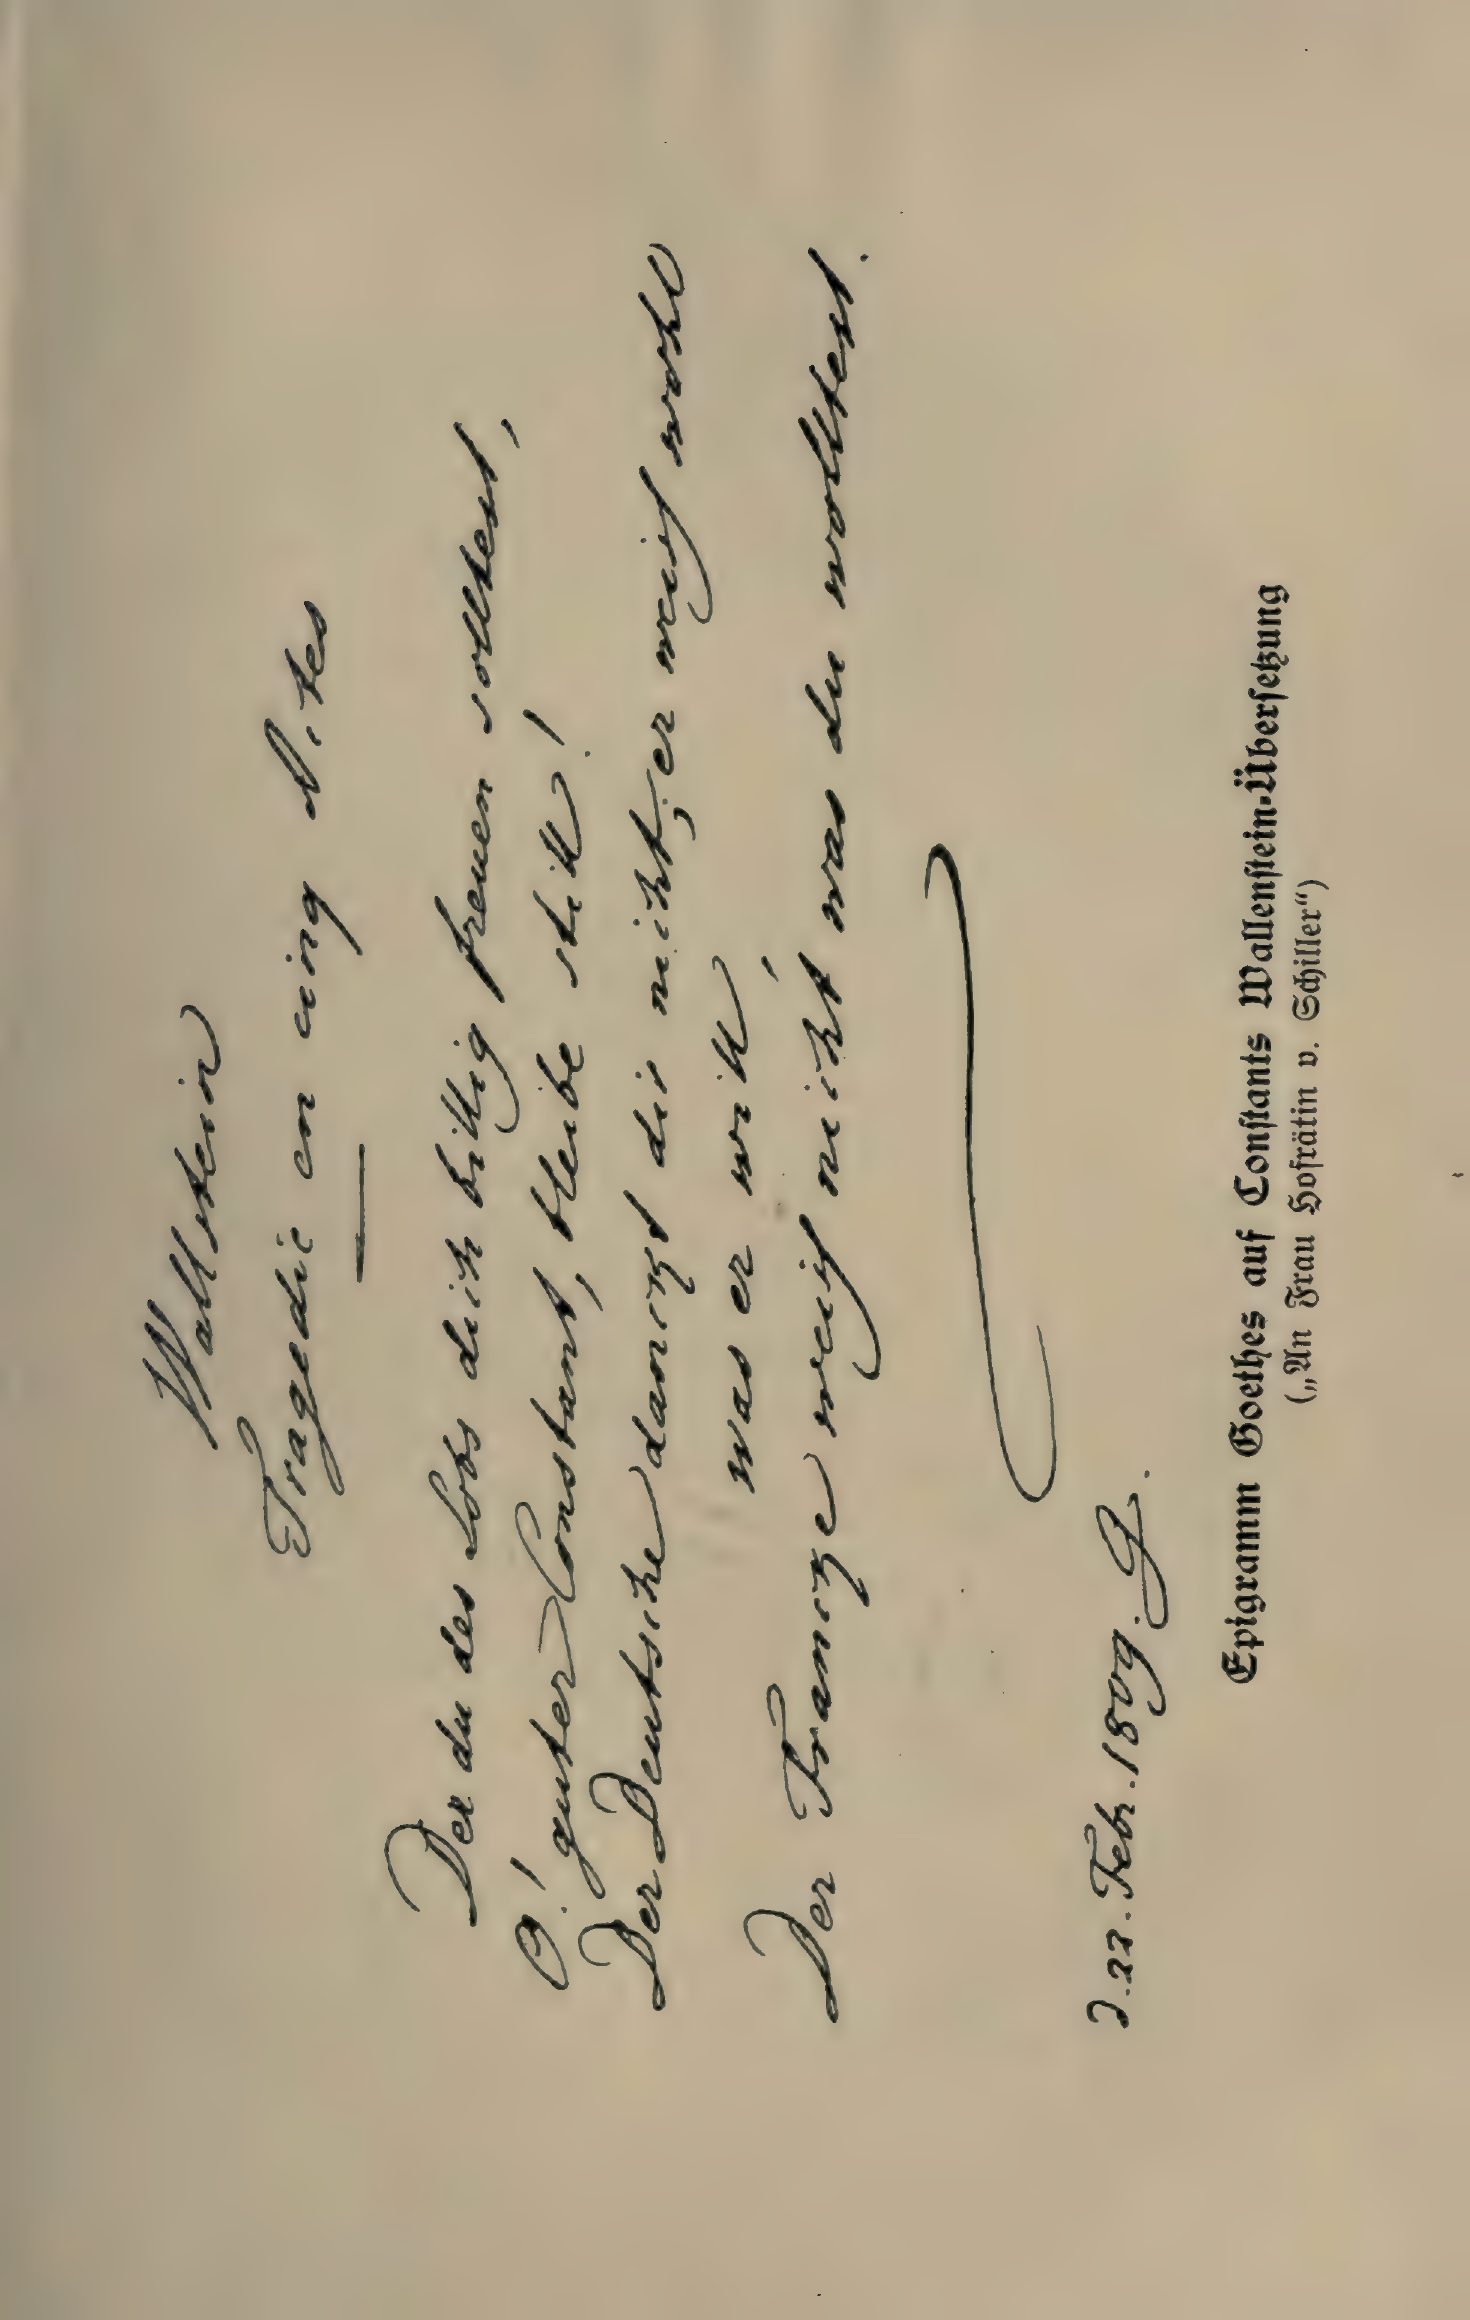 Wallstein
Tragedie en cinq Actes
Der du des Lobs dich billig freuen solltest,
O! guter Constant, bleibe still!
Der Deutsche danckt dir nicht, er weiß wohl
was er will,
Der Franzge weiß nicht was du wolltest.
d. 22. Febr. 1809. G.
Epigramm Goethes auf Constants Wallenstein-Übersetzung
(„An Frau Hofrätin v. Schiller“)